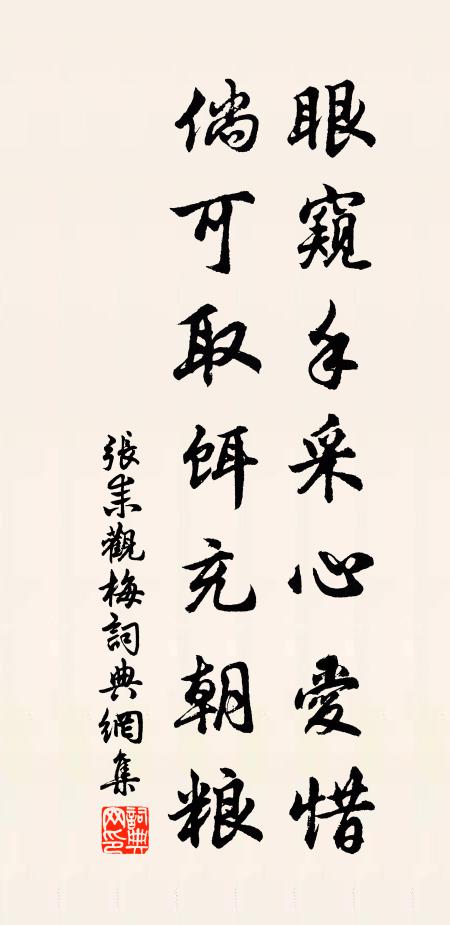 眼窺手采心愛惜
倘可取餌充朝粮
張耒觀梅詞典網集
詞典網印